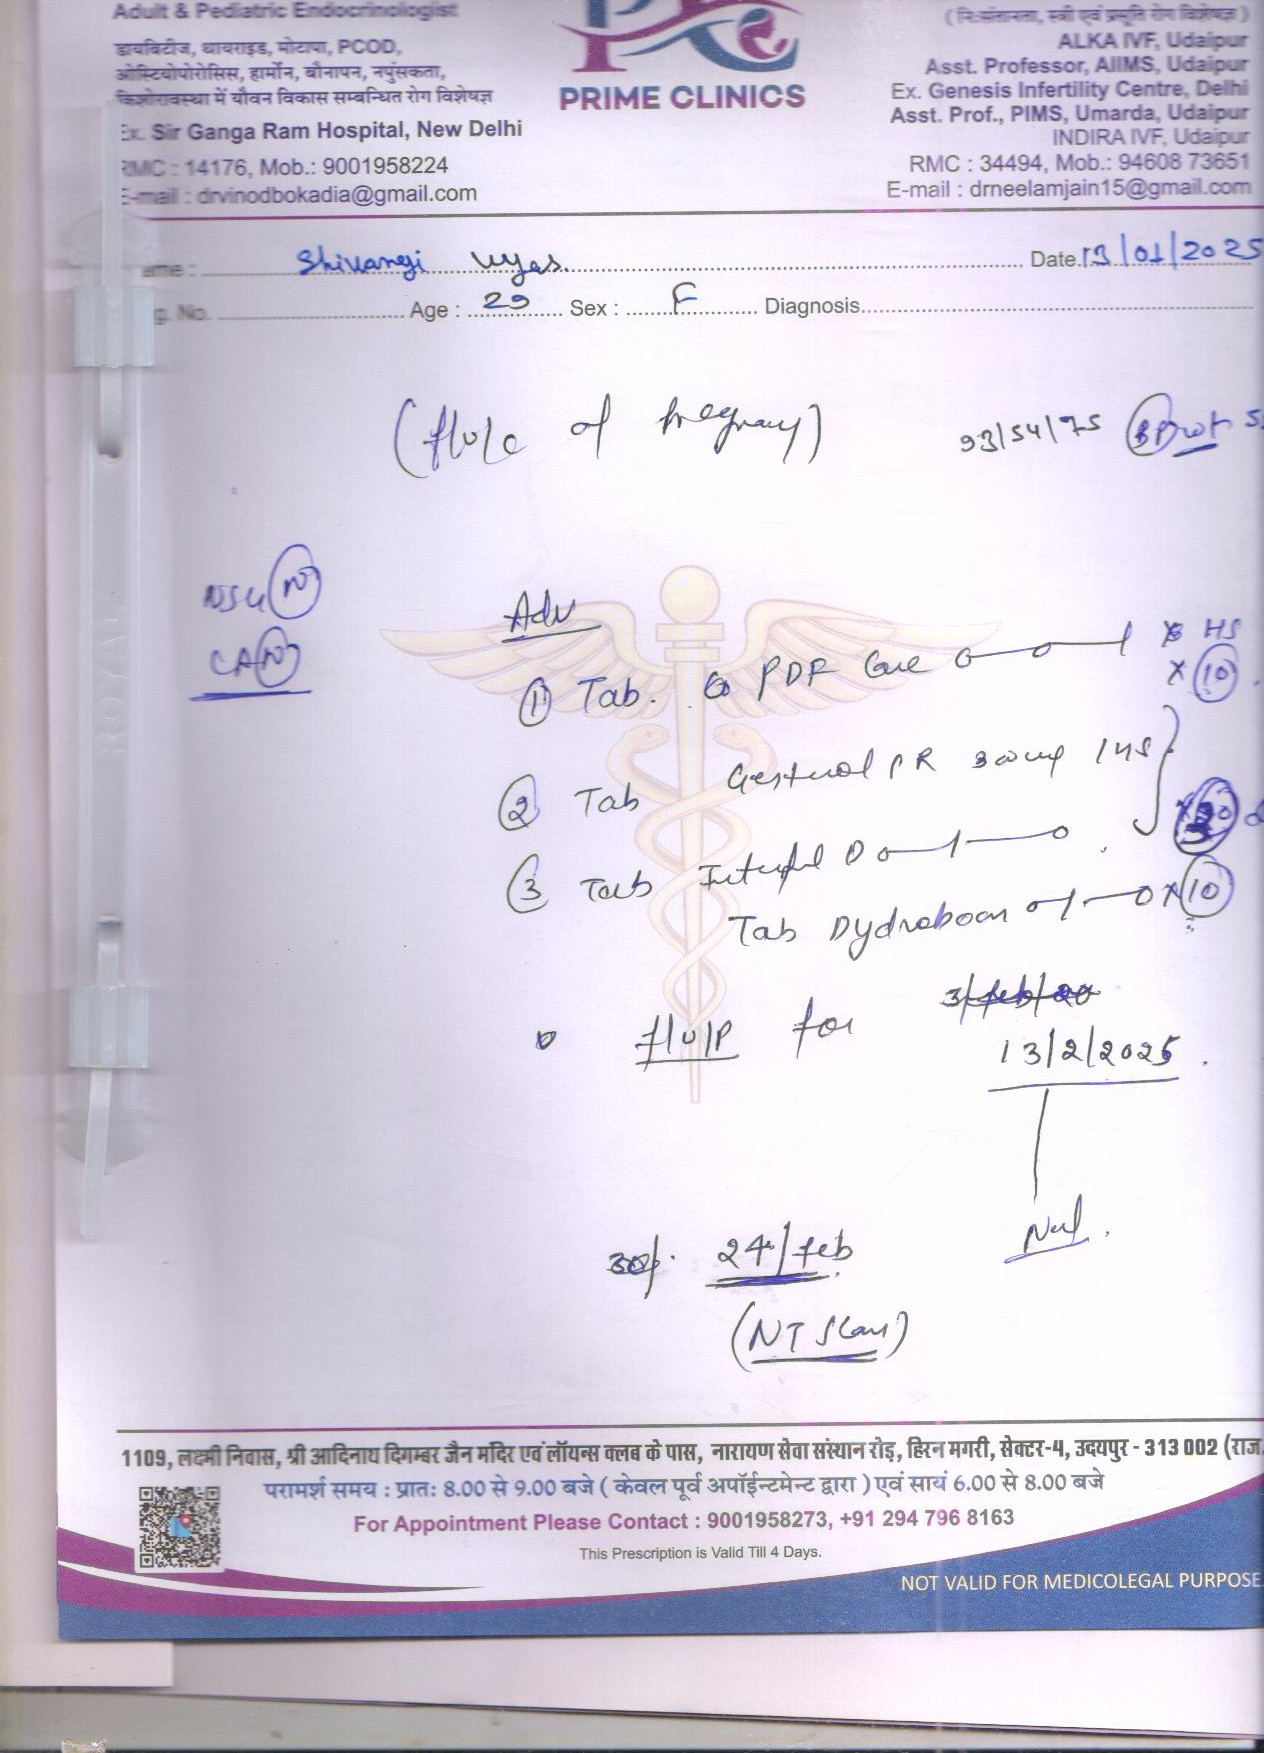 Adult & Pediatric Endocrinologist
डायबिटीज, थायराइड, मोटापा, PCOD,
ओस्टियोपोरोसिस, हार्मोन, बौनापन, नपुंसकता,
किशोरावस्था में यौवन विकास सम्बन्धित रोग विशेषज्ञ
Ex. Sir Ganga Ram Hospital, New Delhi
RMC : 14176, Mob.: 9001958224
E-mail : drvinodbokadia@gmail.com
PRIME CLINICS
(निःसंतानता, स्त्री एवं प्रसूति रोग विशेषज्ञ)
ALKA IVF, Udaipur
Asst. Professor, AIIMS, Udaipur
Ex. Genesis Infertility Centre, Delhi
Asst. Prof., PIMS, Umarda, Udaipur
INDIRA IVF, Udaipur
RMC : 34494, Mob.: 94608 73651
E-mail : drneelamjain15@gmail.com
ame : Shivangi Vyas. Date 13/01/2025
g. No. Age : 29 Sex : F Diagnosis
(f/u/c of pregnancy) 93/54/75
NSG (N)
CA (N)
Adv
① Tab. PDF Care 0—0—1 HS
x (10)
② Tab Gestural SR 300mg 1HS
③ Tab D 0—1—0
Tab Dydroboon 0—1—0 x (10)
f/u/p for 3/feb/20
13/2/2025
24/feb
(NT Scan)
1109, लक्ष्मी निवास, श्री आदिनाथ दिगम्बर जैन मंदिर एवं लॉयन्स क्लब के पास, नारायण सेवा संस्थान रोड़, हिरन मगरी, सेक्टर-4, उदयपुर - 313 002 (राज.
परामर्श समय : प्रातः 8.00 से 9.00 बजे ( केवल पूर्व अपॉईन्टमेन्ट द्वारा ) एवं सायं 6.00 से 8.00 बजे
For Appointment Please Contact : 9001958273, +91 294 796 8163
This Prescription is Valid Till 4 Days.
NOT VALID FOR MEDICOLEGAL PURPOSE
ROYAL